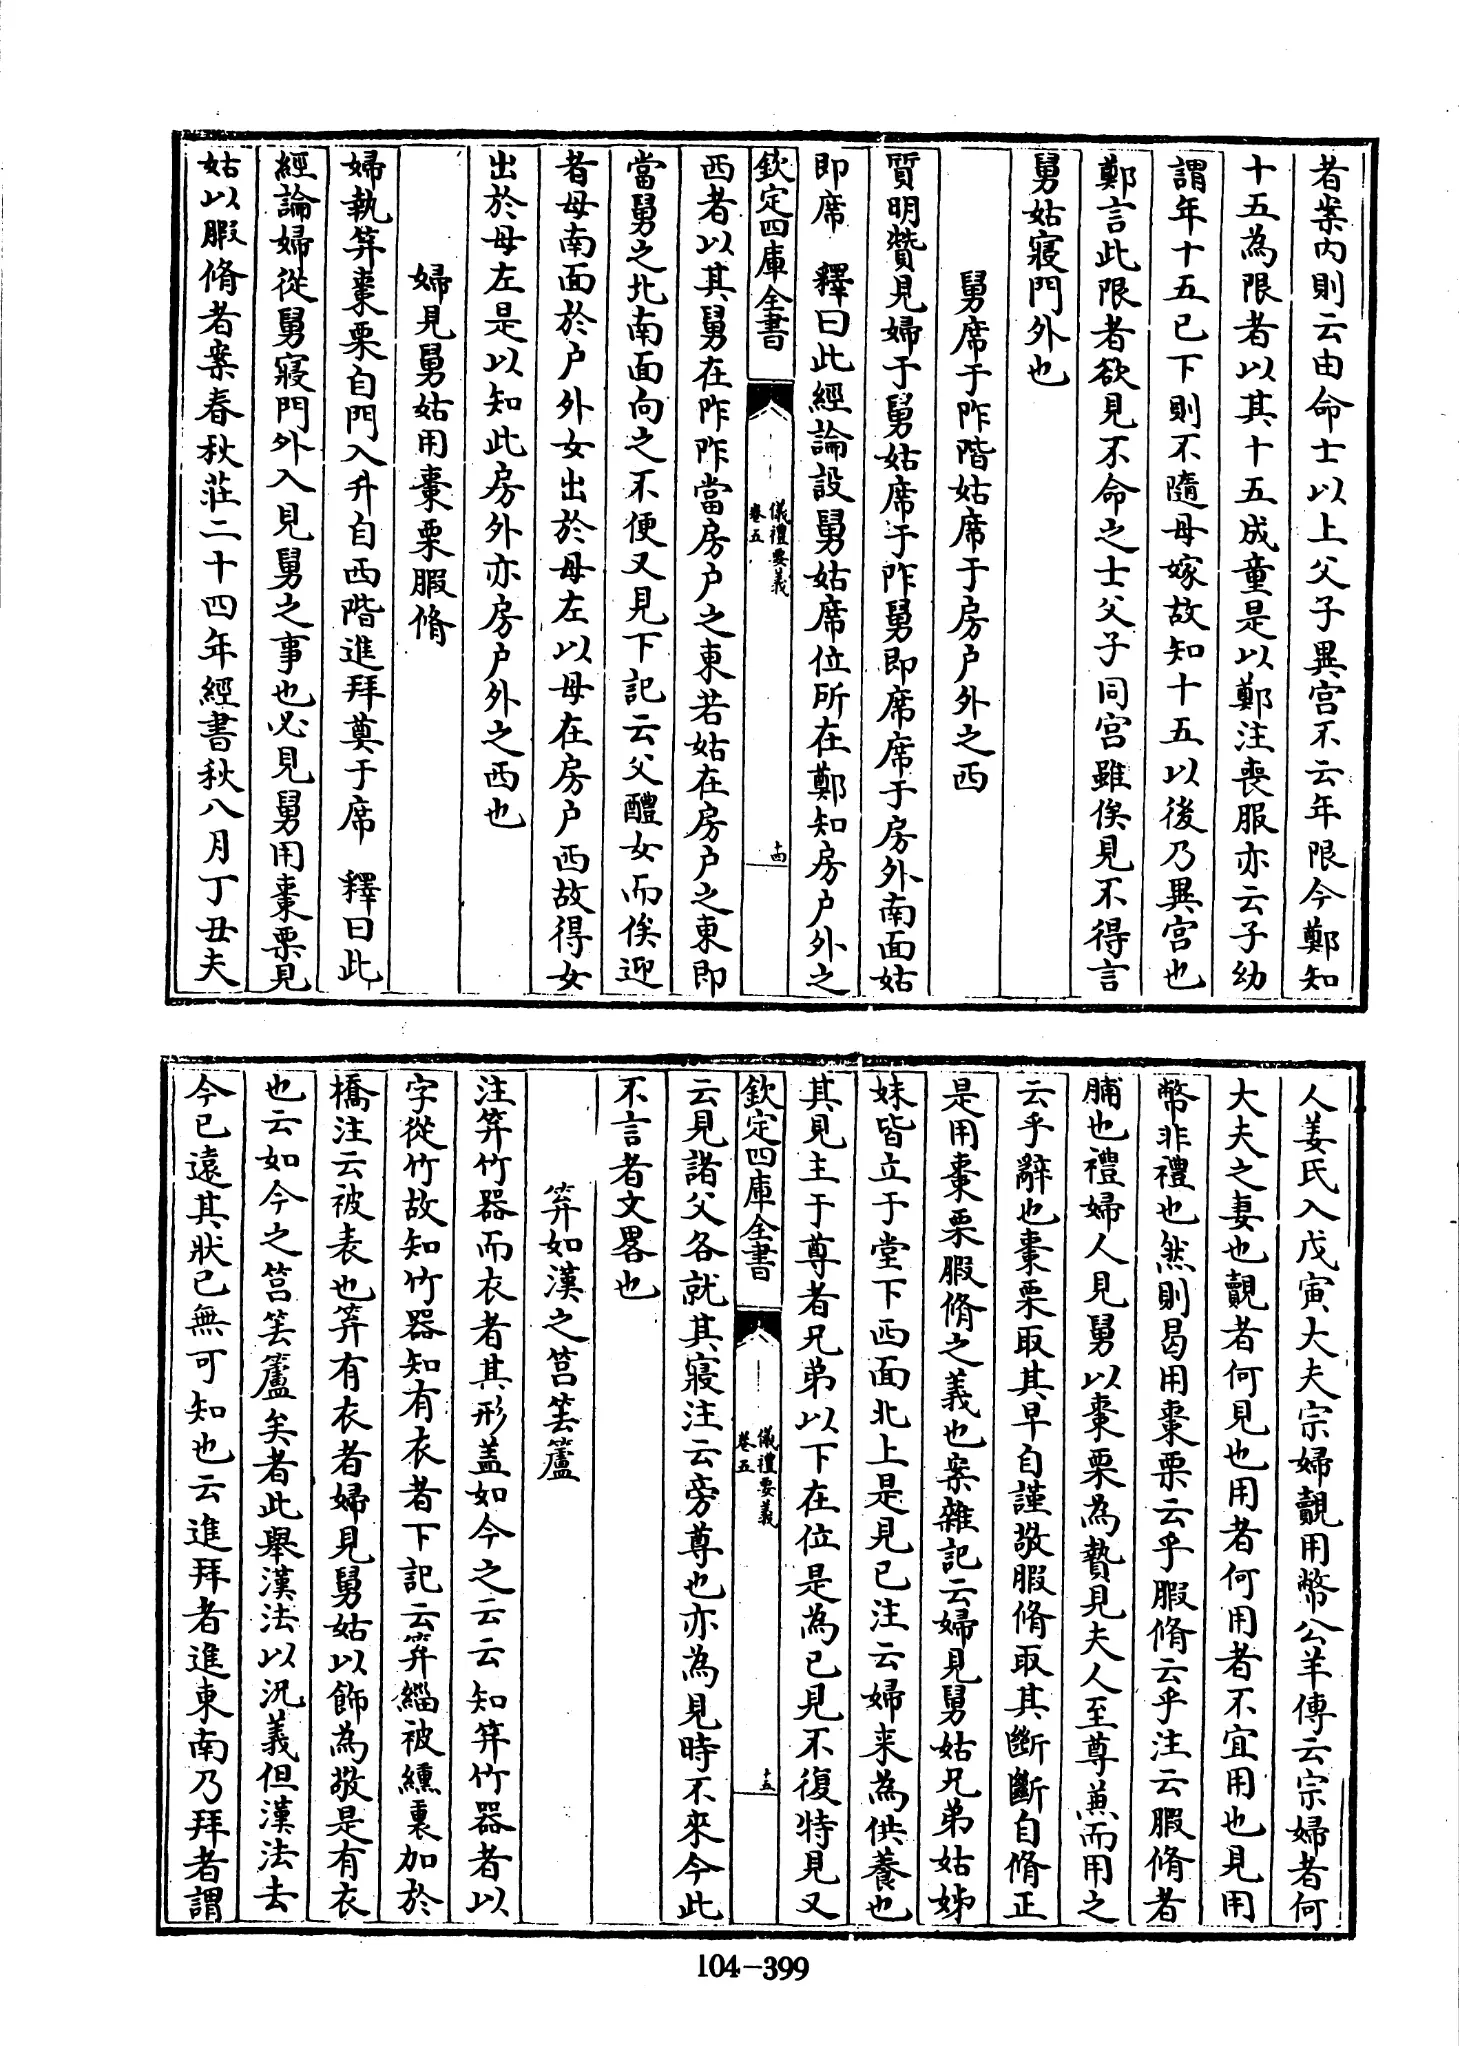 者案内則云由命士以上父子異宫不云年限今鄭知
十五為限者以其十五成童是以鄭注喪服亦云子幼
謂年十五已下則不隨母嫁故知十五以後乃異宫也
鄭言此限者欲見不命之士父子同宫雖俟見不得言
舅姑寢門外也
舅席于阼階姑席于房户外之西
質明贊見婦于舅姑席于阼舅即席席于房外南面姑
即席 釋曰此經論設舅姑席位所在鄭知房户外之
欽定四庫全書
儀禮要義
卷五
十四
西者以其舅在阼阼當房户之東若姑在房户之東即
當舅之北南面向之不便又見下記云父醴女而俟迎
者母南面於户外女出於母左以母在房户西故得女
出於母左是以知此房外亦房户外之西也
婦見舅姑用棗栗腶脩
婦執笲棗栗自門入升自西階進拜奠于席 釋曰此
經論婦從舅寢門外入見舅之事也必見舅用棗栗見
姑以腶脩者案春秋莊二十四年經書秋八月丁丑夫
人姜氏入戊寅大夫宗婦覿用幣公羊傳云宗婦者何
大夫之妻也覿者何見也用者何用者不宜用也見用
幣非禮也然則曷用棗栗云乎腶脩云乎注云腶脩者
脯也禮婦人見舅以棗栗為贄見夫人至尊兼而用之
云乎辭也棗栗取其早自謹敬腶脩取其斷斷自脩正
是用棗栗腶脩之義也案雜記云婦見舅姑兄弟姑姊
妹皆立于堂下西面北上是見已注云婦来為供養也
其見主于尊者兄弟以下在位是為已見不復特見又
欽定四庫全書
儀禮要義
卷五
十五
云見諸父各就其寢注云旁尊也亦為見時不來今此
不言者文畧也
笲如漢之筥䇲籚
注笲竹器而衣者其形蓋如今之云云知笲竹器者以
字從竹故知竹器知有衣者下記云笲緇被纁裏加於
橋注云被表也笲有衣者婦見舅姑以飾為敬是有衣
也云如今之筥䇲籚矣者此舉漢法以況義但漢法去
今已遠其狀已無可知也云進拜者進東南乃拜者謂
104-399